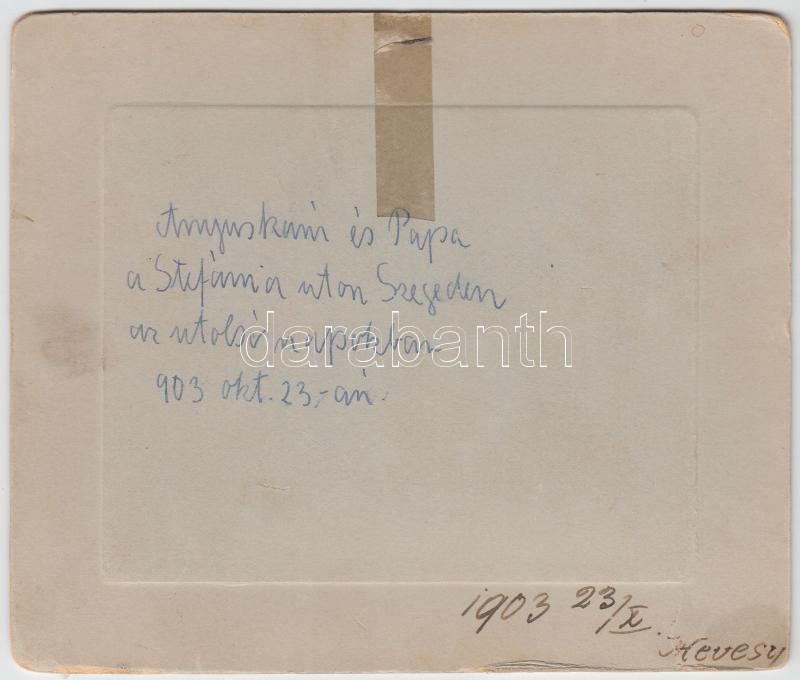 Anyuskám és Papa
a Stefánia uton Szegeden
az utolsó napokban
903 okt. 23.-án.
darabanth
1903 23/X.
Hevesy